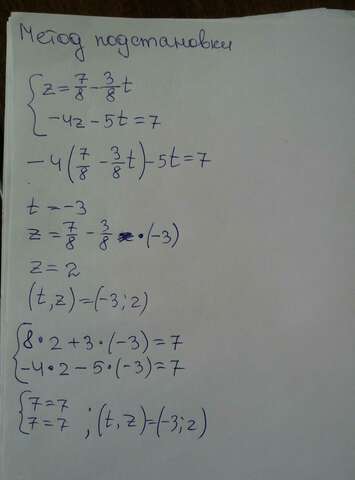 Метод подстановки
{z = 7/8 - 3/8 t
-4z - 5t = 7
-4(7/8 - 3/8 t) - 5t = 7
t = -3
z = 7/8 - 3/8 · (-3)
z = 2
(t, z) = (-3; 2)
{8 · 2 + 3 · (-3) = 7
-4 · 2 - 5 · (-3) = 7
{7 = 7
7 = 7 ; (t, z) = (-3; 2)